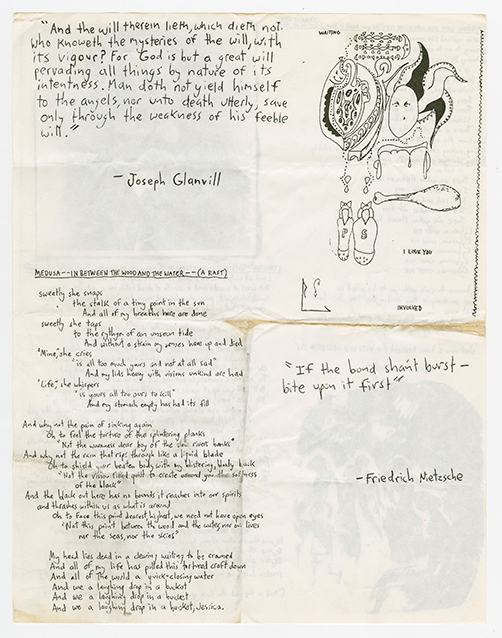 "And the will therein lieth, which dieth not.
Who knoweth the mysteries of the will, with
its vigour? For God is but a great will
pervading all things by nature of its
intentness. Man doth not yield himself
to the angels, nor unto death utterly, save
only through the weakness of his feeble
will."
- Joseph Glanvill
WAITING
P S
I LIKE YOU
INVOLVED
MEDUSA--IN BETWEEN THE WOOD AND THE WATER--(A RAFT)
sweetly she snaps
the stalk of a tiny point in the sun
And all of my breaths here are done
sweetly she taps
to the rythym of an unseen tide
And without a strain my senses heave up and died
"Mine," she cries
"is all too much yours and not at all sad"
And my lids heavy with visions unkind are had
"Life," she whispers
"is yours all too yours to kill"
And my stomach empty has had its fill
And why not the pain of sinking again
Oh to feel the torture of the splintering planks
"Not the warmness dear boy of the sun rivers banks"
And why not the rain that rips through like a liquid blade
Oh to shield your beaten body with my blistering, bloody back
"Not the vision fixed quiet to create around you the softness
of the black"
And the black out here has no bounds it reaches into our spirits
and thrashes within us as what is around
Oh to face this point dearest highest, we need not have open eyes
"Not this point between the wood and the water, nor our lives
nor the seas, nor the skies"
My head lies dead in a clearing waiting to be crowned
And all of my life has pulled this tarhead craft down
And all of the world a quick-closing water
And we a laughing drop in a bucket
And we a laughing drop in a bucket
And we a laughing drop in a bucket, Jessica.
"If the bond shan't burst -
bite upon it first"
- Friedrich Nietzsche